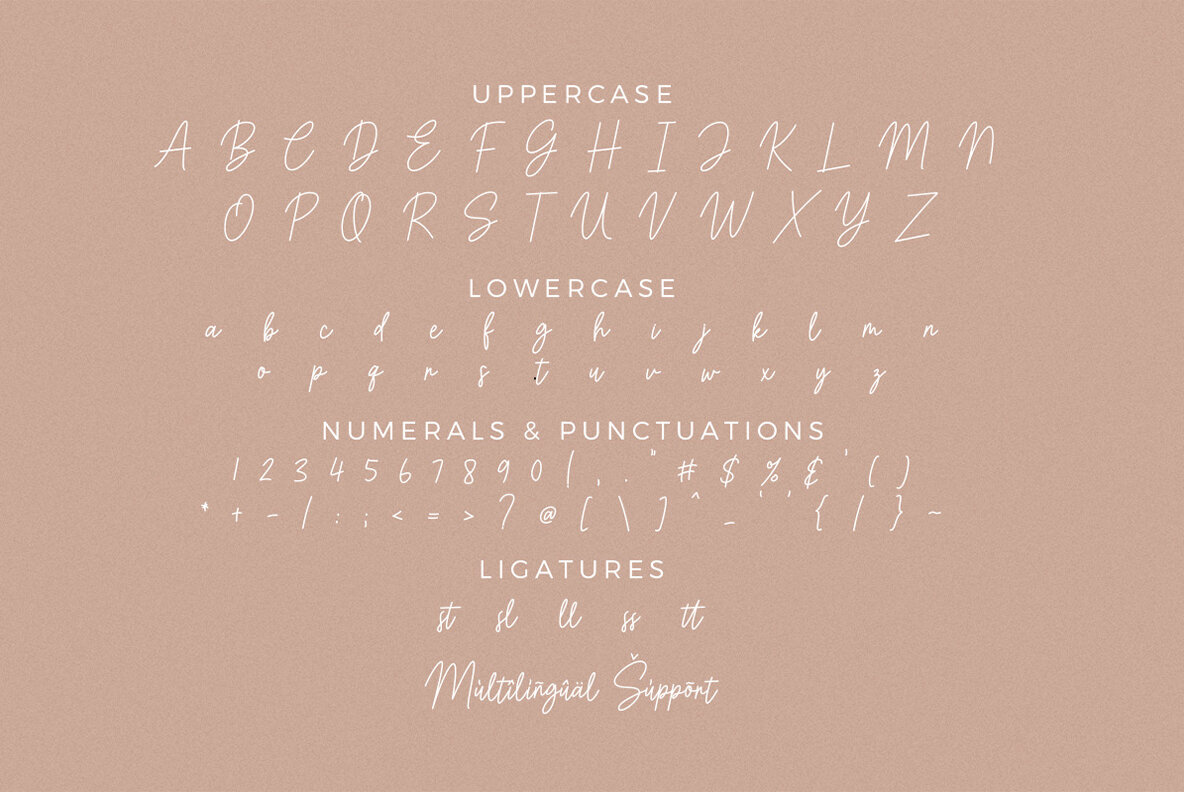 UPPERCASE
A B C D E F G H I J K L M N
O P Q R S T U V W X Y Z
LOWERCASE
a b c d e f g h i j k l m n
o p q r s t u v w x y z
NUMERALS & PUNCTUATIONS
1 2 3 4 5 6 7 8 9 0 ! , . " # $ % & ' ( )
* + - / : ; < = > ? @ [ \ ] ^ _ ‘ ’ { | } ~
LIGATURES
st sl ll ss tt
Múltîliñgûäl Šúppõrt